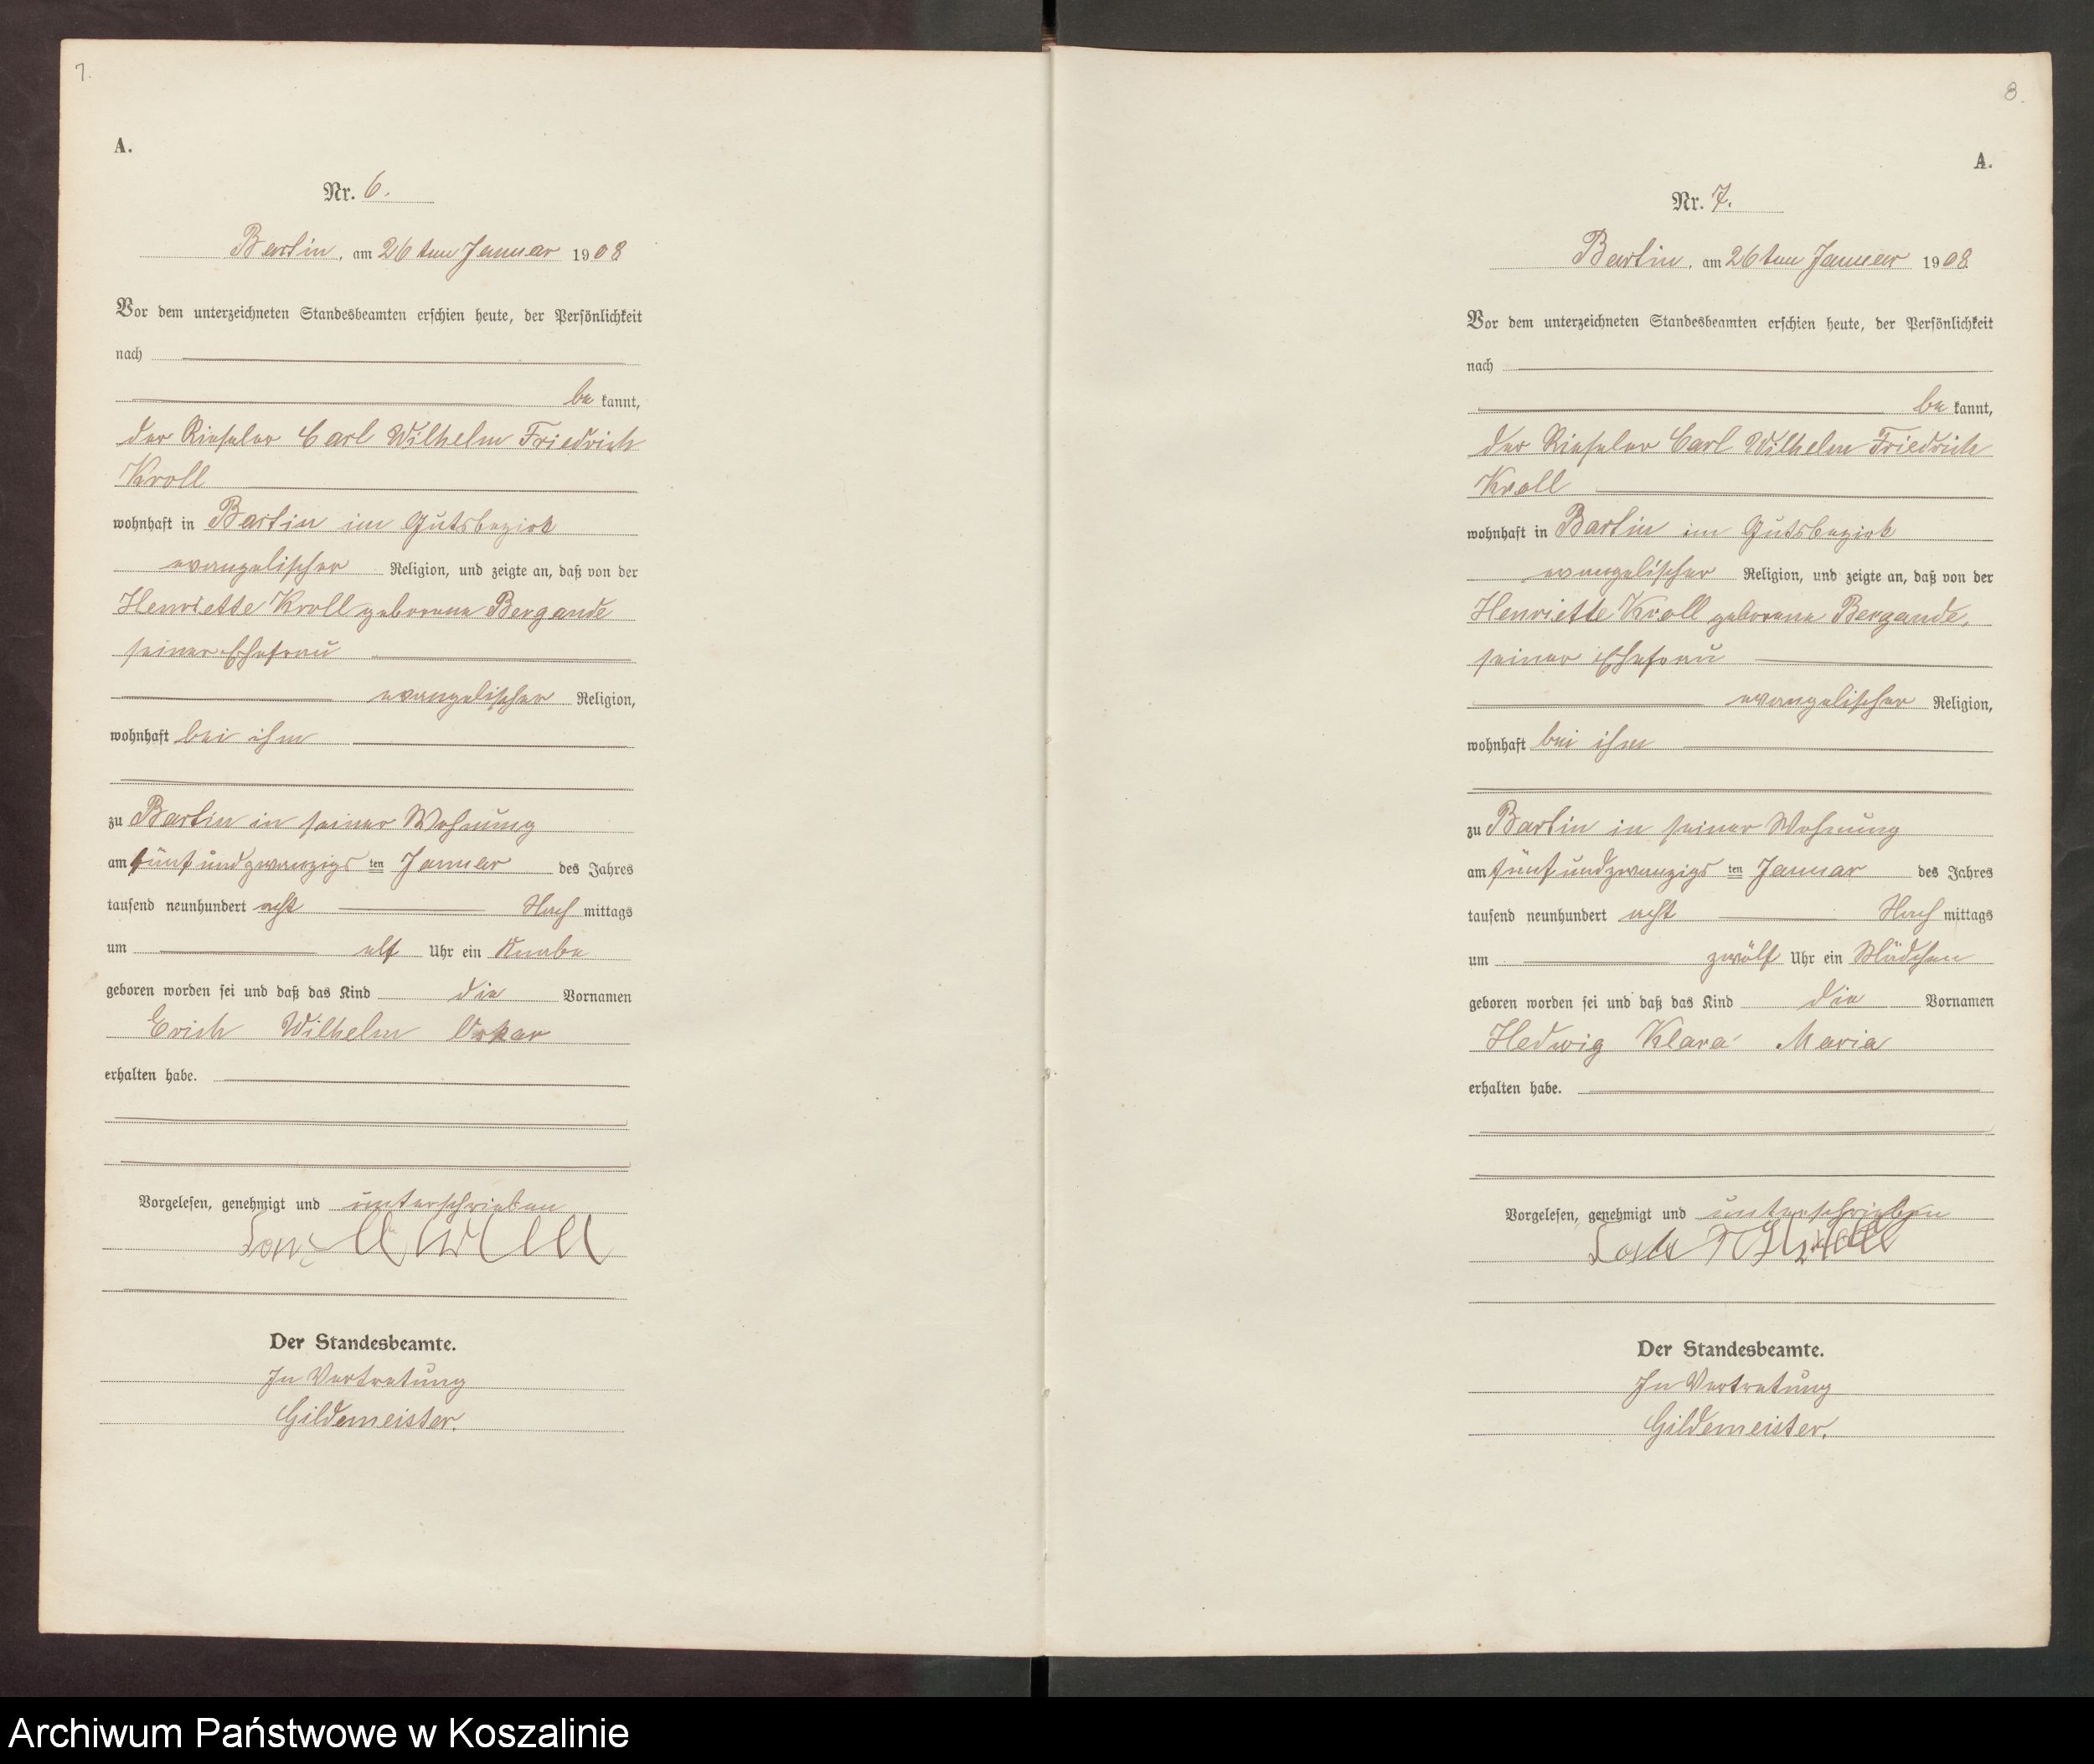 7.
A.
Nr. 6.
Bartin, am 26ten Januar 1908
Vor dem unterzeichneten Standesbeamten erschien heute, der Persönlichkeit
nach
be kannt,
der Rieseler Carl Wilhelm Friedrich
Kroll
wohnhaft in Bartin im Gutsbezirk
evangelischer Religion, und zeigte an, daß von der
Henriette Kroll geborene Bergande
seiner Ehefrau
evangelischer Religion,
wohnhaft bei ihm
zu Bartin in seiner Wohnung
am fünfundzwanzigsten Januar des Jahres
tausend neunhundert acht Nach mittags
um elf Uhr ein Knabe
geboren worden sei und daß das Kind die Vornamen
Erich Wilhelm Oskar
erhalten habe.
Vorgelesen, genehmigt und unterschrieben
Der Standesbeamte.
In Vertretung
Gildemeister.
8.
A.
Nr. 7.
Bartin, am 26ten Januar 1908
Vor dem unterzeichneten Standesbeamten erschien heute, der Persönlichkeit
nach
be kannt,
der Rieseler Carl Wilhelm Friedrich
Kroll
wohnhaft in Bartin im Gutsbezirk
evangelischer Religion, und zeigte an, daß von der
Henriette Kroll geborene Bergande,
seiner Ehefrau
evangelischer Religion,
wohnhaft bei ihm
zu Bartin in seiner Wohnung
am fünfundzwanzigsten Januar des Jahres
tausend neunhundert acht Nach mittags
um zwölf Uhr ein Mädchen
geboren worden sei und daß das Kind die Vornamen
Hedwig Klara Maria
erhalten habe.
Vorgelesen, genehmigt und unterschrieben
Der Standesbeamte.
In Vertretung
Gildemeister.
Archiwum Państwowe w Koszalinie